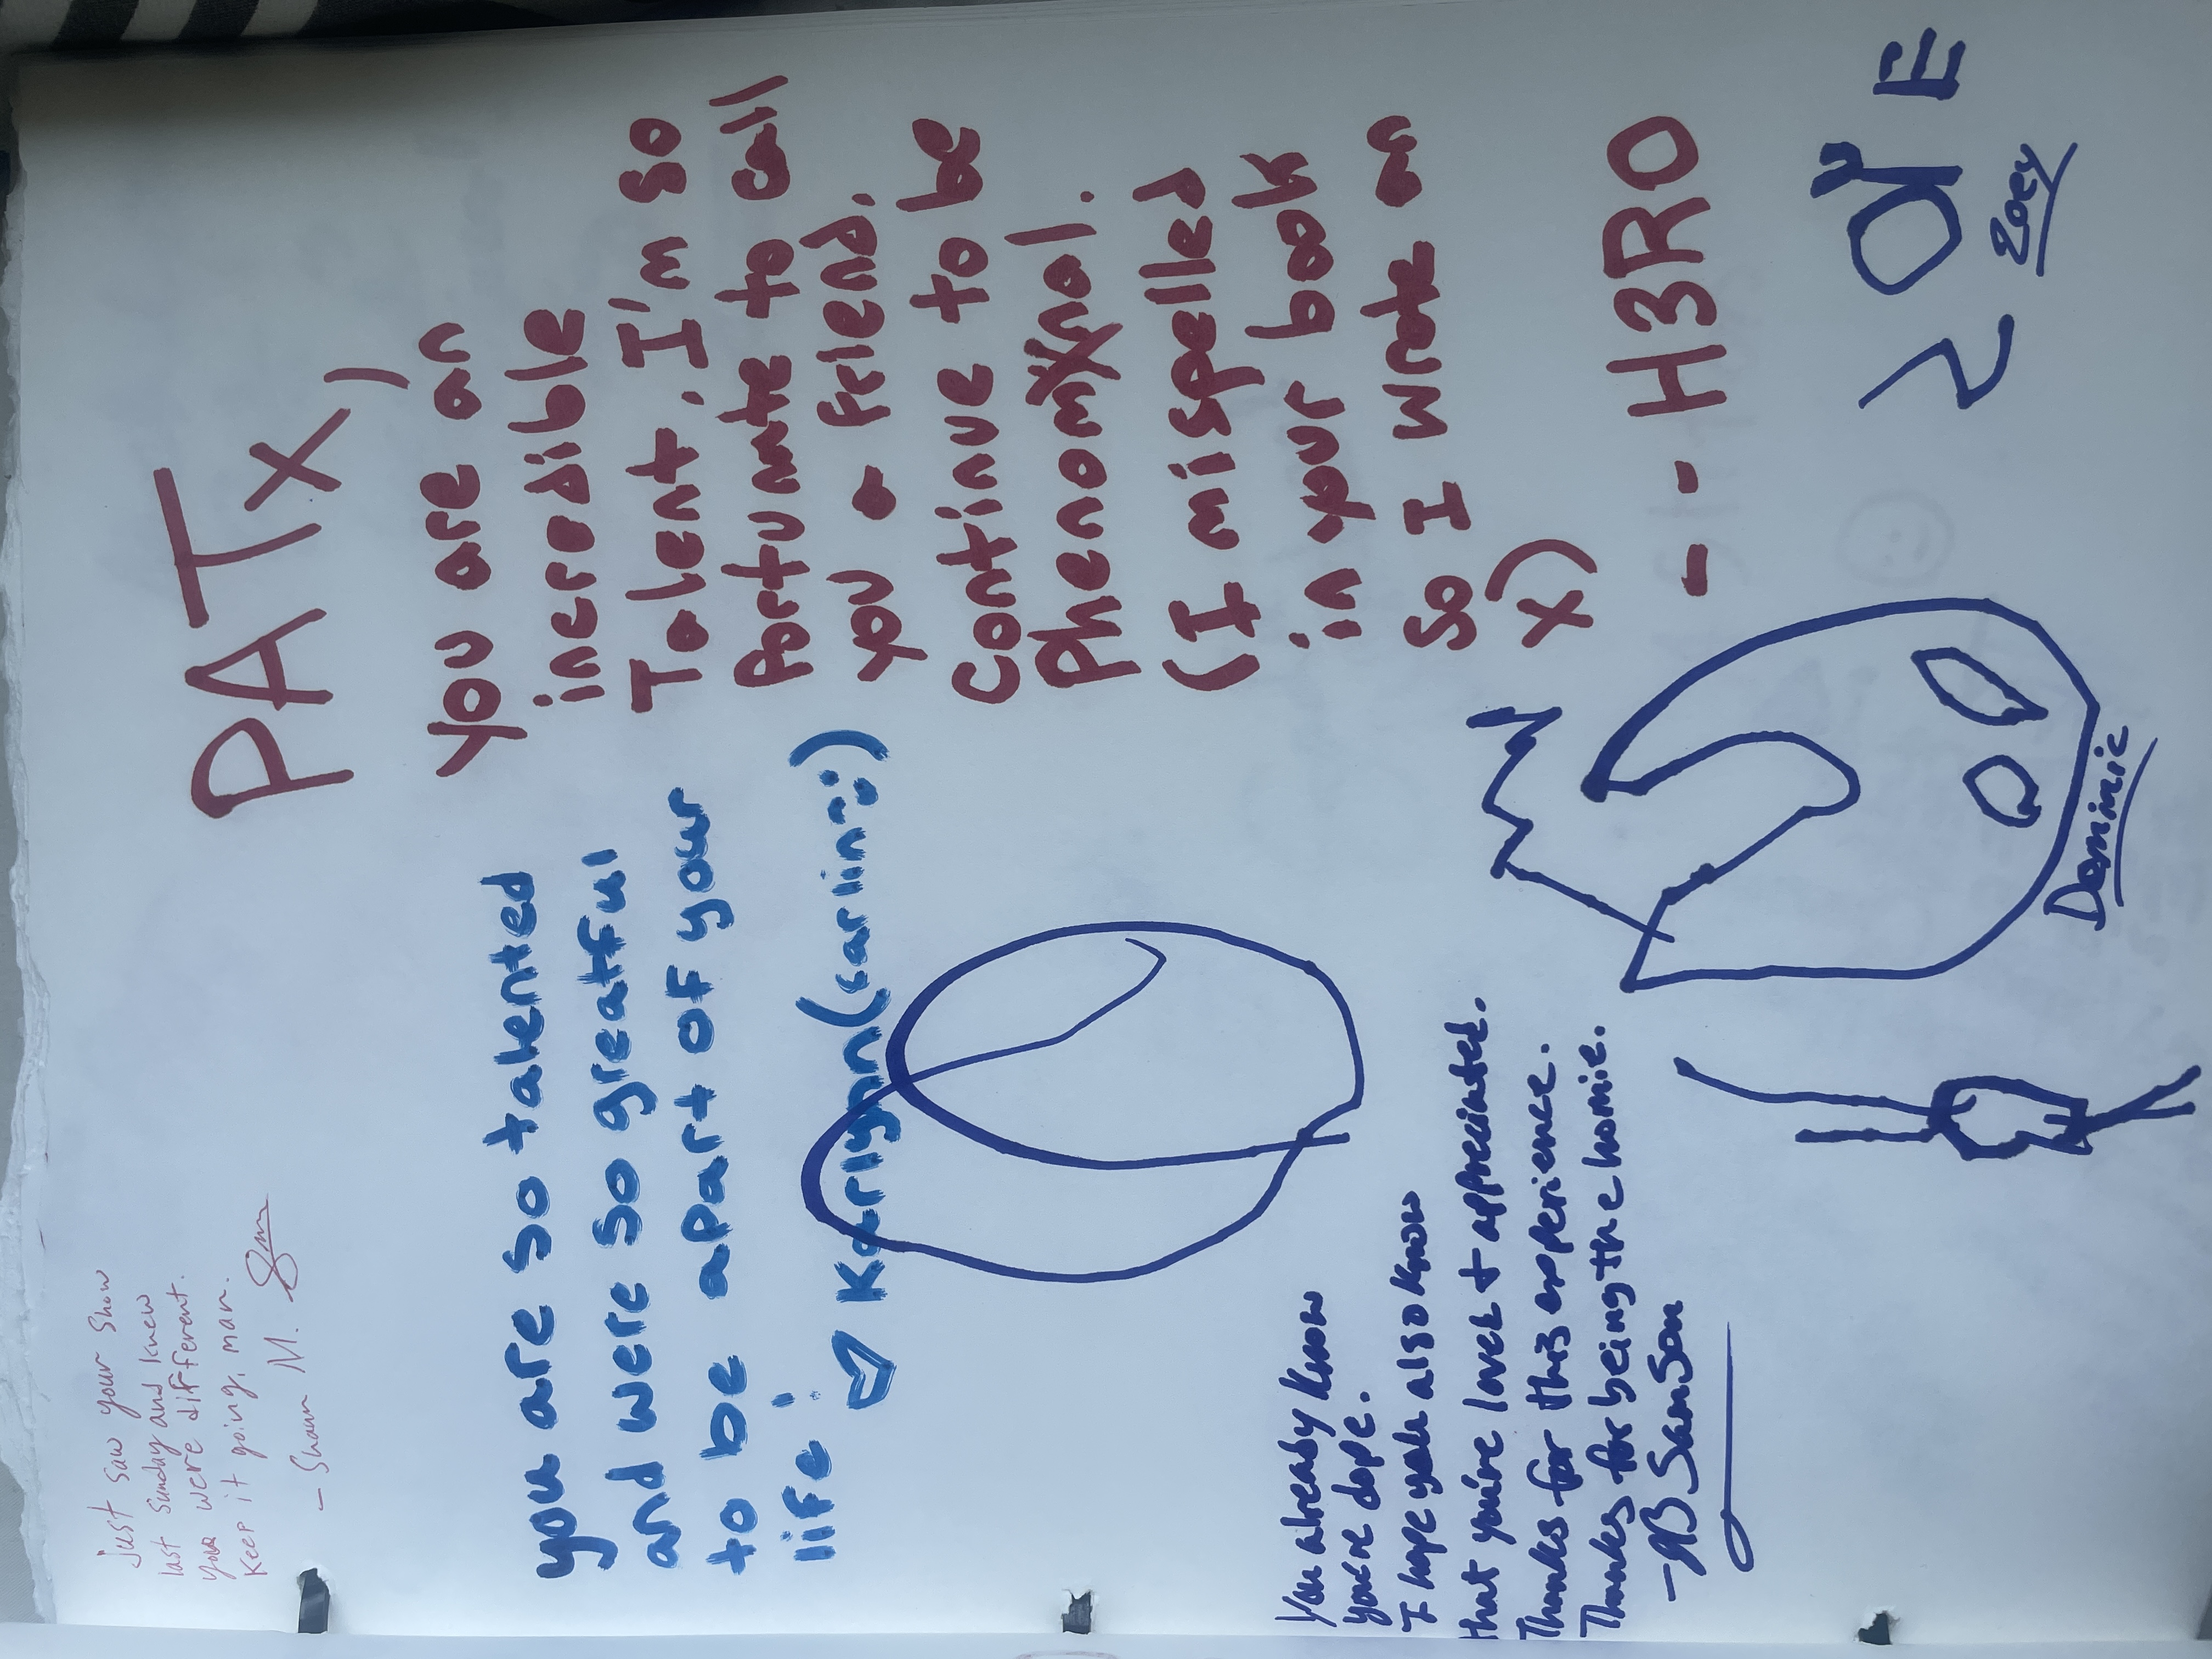 Just saw your show
last Sunday and knew
you were different.
Keep it going, man.
- Shaun M.
you are so talented
and were so greatful
to be apart of your
life!
Karlynn (carlin :)
You already know
you're dope.
I hope you also know
that you're loved + appreciated.
Thanks for this experience.
Thanks for being the homie.
- B SamSon
PATX)
you are an
incredible
Talent. I'm so
Fortunate to call
you a friend.
Continue to be
Phenomxnal.
(I mispelled
in your book
so I wrote on
X)
-- H3RO
Dominic
ZOE
Zoey